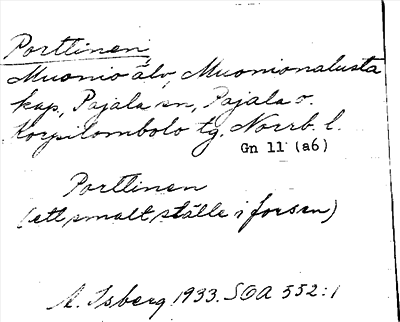 Porttinen,
Muonio älv, Muonionalusta
kap, Pajala sn, Pajala o.
Korpilombolo tg. Norrb. l.
Gn 11 (a6)
Porttinen
(ett smalt ställe i forsen)
A. Isberg 1933. SOA 552:1